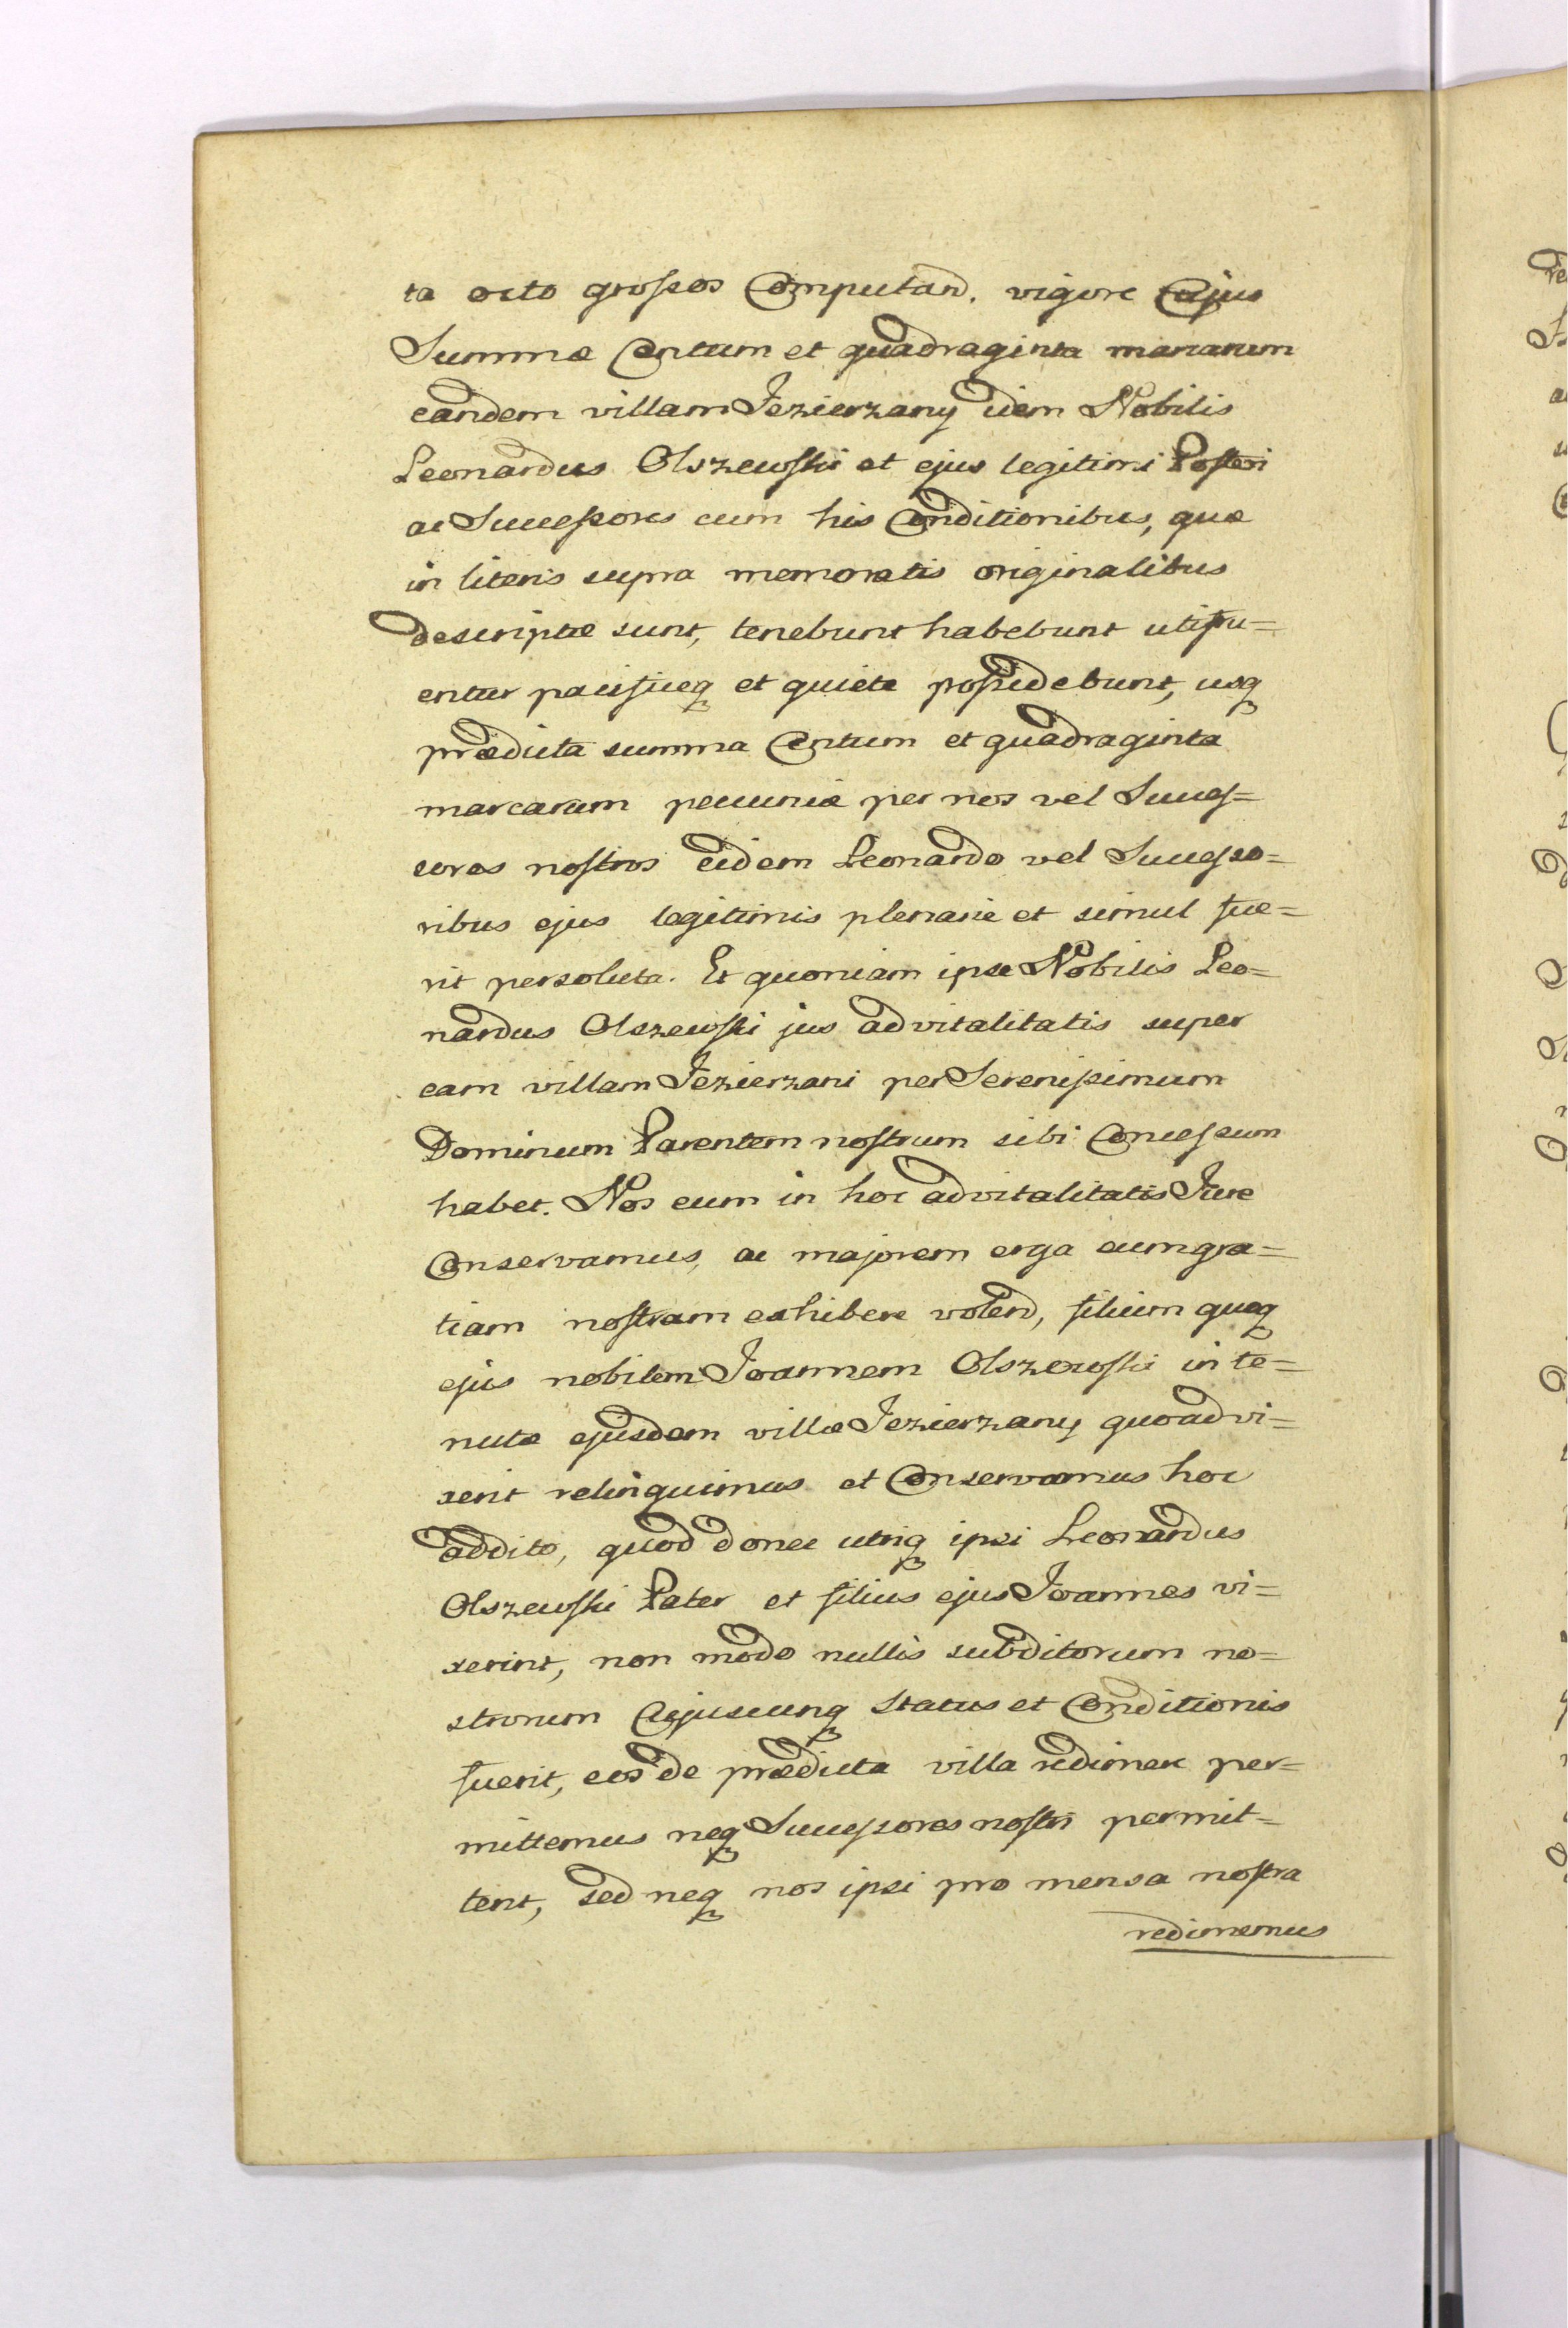 ta octo grossos Computand. vigore Cujus
Summæ Centum et quadraginta marcarum
eandem villam Jezierzany idem Nobilis
Leonardus Olszewski et ejus legitimi Posteri
ac Successores cum his Conditionibus, quæ
in literis supra memoratis originalibus
descriptæ sunt, tenebunt habebunt utifru=
entur pacificeq et quiete possidebunt, usq
prædicta summa Centum et quadraginta
marcarum pecuniæ per nos vel Succes=
sores nostros eidem Leonardo vel Successo=
ribus ejus legitimis plenarie et simul fue=
rit persoluta. Et quoniam ipse Nobilis Leo=
nardus Olszewski jus advitalitatis super
eam villam Jezierzani per Serenissimum
Dominum Parentem nostrum sibi Concessum
habet. Nos eum in hoc advitalitatis Jure
Conservamus, ac majorem erga eum gra=
tiam nostram exhibere volend, filium quoq
ejus nobilem Joannem Olszewski in te=
nuta ejusdem villæ Jezierzany quoad vi=
xerit relinquimus et Conservamus hoc
addito, quod donec utriq ipsi Leonardus
Olszewski Pater et filius ejus Joannes vi=
xerint, non modo nullis subditorum no=
strorum Cujuscunq status et Conditionis
fuerit, eos de prædicta villa redimere per=
mittemus neq Successores nostri permit=
tent, sed neq nos ipsi pro mensa nostra
redimemus